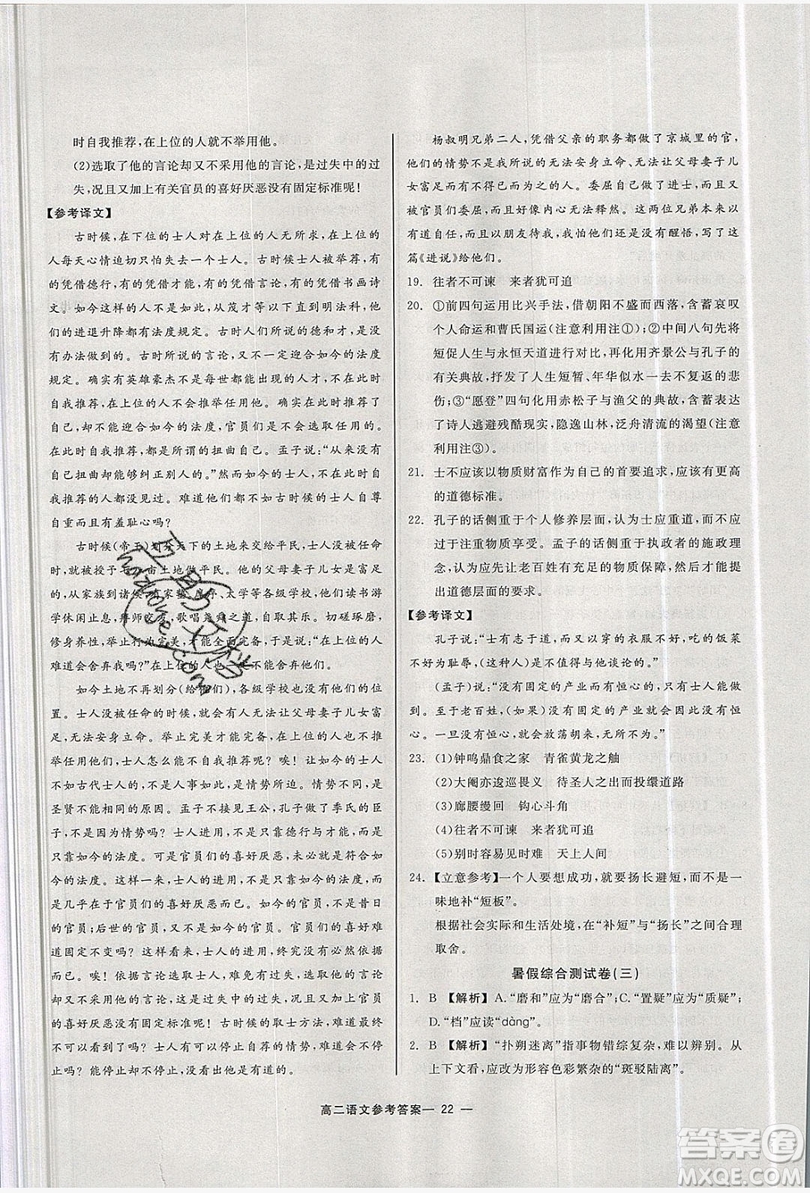 时自我推荐,在上位的人就不举用他。
(2)选取了他的言论却又不采用他的言论,是过失中的过
失,况且又加上有关官员的喜好厌恶没有固定标准呢!
【参考译文】
古时候,在下位的士人对在上位的人无所求,在上位的
人每天心情迫切只怕失去一个士人。古时候士人进用,有
的凭借德行,有的凭借才能,有的凭借言论,有的凭借书画诗
文。如今这样的人不是这样,从茂才等到明法科,他
们的进退升降都有法度规定。古时人们所说的德和才,没
有办法达到如今的法度。古时所说的言论,又未必合如今的法度
规定。确实有英雄豪杰不同世俗的人才,却不能被推举出
了自己,却不能迎合如今的法度,官员们不会任用他们。
确实使自己能迎合法度,就是所谓的扭曲自己。孟子说:“从来没有
自己扭曲却能够纠正别人的。”然而如今士人的进用,不
自我推荐的人都没见过。难道他们不如古时候的士人自尊
自重而且有羞耻心吗?
古时候
的土地来交给平民,士人没有被任命的时候,
就是被授予一
土地来供养他。他的父母妻子儿女富足,
从家族到诸侯
太学等各级学校。他们在那里读书游
学休闲止息,
师亲友,歌唱尧舜之道,自取其乐。切磋琢磨,
修身养性,举止行为完美,才能全面完备,在上位的人
难道会舍弃他们吗?在上位的人即使舍弃他们。
如今土地不再划分(给他们),各级学校也没有他们的位
置。士人没被任命的时候,有的人无法让父母妻子儿女富
足,无法安身立命。举止完美才能完备,在上位的人
都不举用他,虽然想不自我推荐可能吗?唉!让如今的人都
不如古代士人的人,不是人事如此,是情势所造成的。
圣贤不能有相同的原因。孟子不见王公,孔子做了季氏的臣
子,不是情势吗?士人的进用,不凭借德行与才能,而是
凭借如今的法度。如今的官员的喜好厌恶,未必是如今的
法度。这样,士人的进用,不是凭借如今的法度,而
是几乎在于官员的喜好厌恶罢了。如今的官员,不是昔日
的官员;后世的官员,又不是今天的官员。官员们的喜好厌恶
难道有固定标准吗?士人的进用,终究没有根据就可以明
白了。唉!选取人凭借言论,难免有过失,选取他的言论却
又不采用他的言论,是过失中的过失,况且又加上官员
的喜好厌恶没有固定标准呢!古时候的取士方法难道最终
不可以看见了吗?士人面对这个时代,想不委屈自己可
能吗?士人还是不明白罢了。
杨叔明兄弟二人,凭借父亲的职务都做了京城里的官,
他们的情势不是我所说的无法安身立命、无法让父母妻子儿
女富足而且有困境的人。委屈自己成了进士,又
被官员们委屈,我本来就对他们无法释然。这两位兄弟
有才德,可以和他们谈论古代,恐怕他们还没有醒悟,写了这
篇《进说》给他们。
19. 往者不可谏 来者犹可追
20. ①前四句运用比兴手法,借朝阳不盛而西落,含蓄哀叹
个人命运和曹氏国运(注意利用注①);②中间八句先将
短促人生与永恒天道进行对比,再化用齐景公与孔子的
有关典故,抒发了人生短暂、年华似水、美好难久的悲
伤;③“愿登”四句化用赤松子与渔父的典故,含蓄表达
了诗人逃避残酷现实,隐逸山林、泛舟清流的渴望(注意
利用注③)。
21. 士不应该以物质财富作为自己的首要追求,应该有更高
的道德标准。
22. 孔子的话侧重于个人修养层面,认为士应重道,而不应
过于注重物质享受。孟子的话侧重于执政者的施政理
念,认为应先让老百姓有充足的物质保障,然后才能提
出道德层面的要求。
【参考译文】
孔子说:“士有志于道,而又以穿的衣服不好、吃的饭菜
不好为耻辱,(这种人)是不值得与他谈论道的。”
(孟子)说:“没有固定的产业而有恒心的,只有士人能做
到。至于老百姓,(如果)没有固定的产业,便也就没有恒
心。一旦没有恒心,就会放荡胡来,无所不为。”
23. (1)钟鸣鼎食之家 青雀黄龙之舳
(2)大阉亦逡巡畏义 待圣人之出而投缳道路
(3)廊腰缦回 钩心斗角
(4)往者不可谏 来者犹可追
(5)别时容易见时难 天上人间
24. 【立意参考】一个人要想成功,就要扬长避短,而不是一
味地补“短板”。
根据社会实际和生活处境,在“补短”与“扬长”之间合理
取舍。
暑假综合测试卷(三)
1. B 【解析】A.“磨和”应为“磨合”;C.“置疑”应为“质疑”;
D.“档”应读“dàng”。
2. B 【解析】“扑朔迷离”指事物错综复杂,难以辨别。从
上下文看,应是色彩繁杂的“斑驳陆离”。
高二语文参考答案— 22 —
答案圈
MXQE.COM